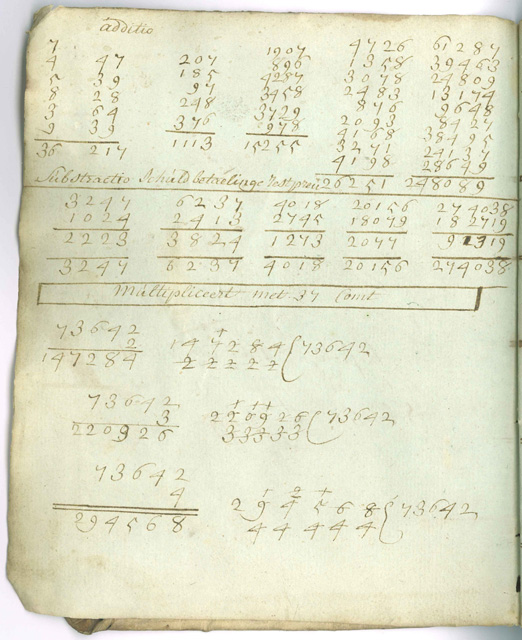 additio
7 1907 4726 61287
4 47 207 896 1358 39463
5 39 185 4257 3078 24809
8 28 97 3458 2483 13174
3 64 248 3729 876 9648
9 39 376 978 2093 8427
36 217 1113 15255 4168 38495
3271 24137
4198 28649
Substractio Schuld betaelinge Rest preu 26251 248089
3247 6237 4018 20156 274038
1024 2413 2745 18079 182719
2223 3824 1273 2077 91319
3247 6237 4018 20156 274038
Multipliceert met 37 Comt
73642
2 147284 ( 73642
147284 22222
73642
3 220926 ( 73642
220926 33333
73642
4 294568 ( 73642
294568 44444